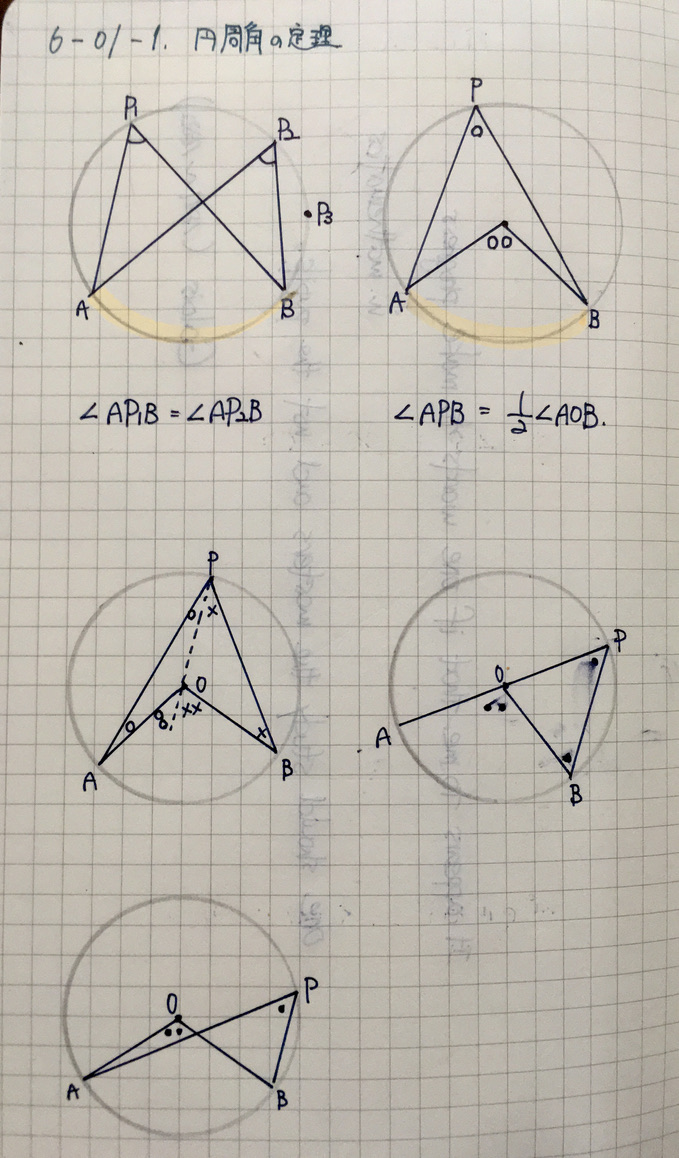 6-01-1. 円周角の定理
P1
P2
P3
A
B
P
A
B
∠AP1B = ∠AP2B
∠APB = 1/2 ∠AOB.
P
O
A
B
P
O
A
B
O
P
A
B